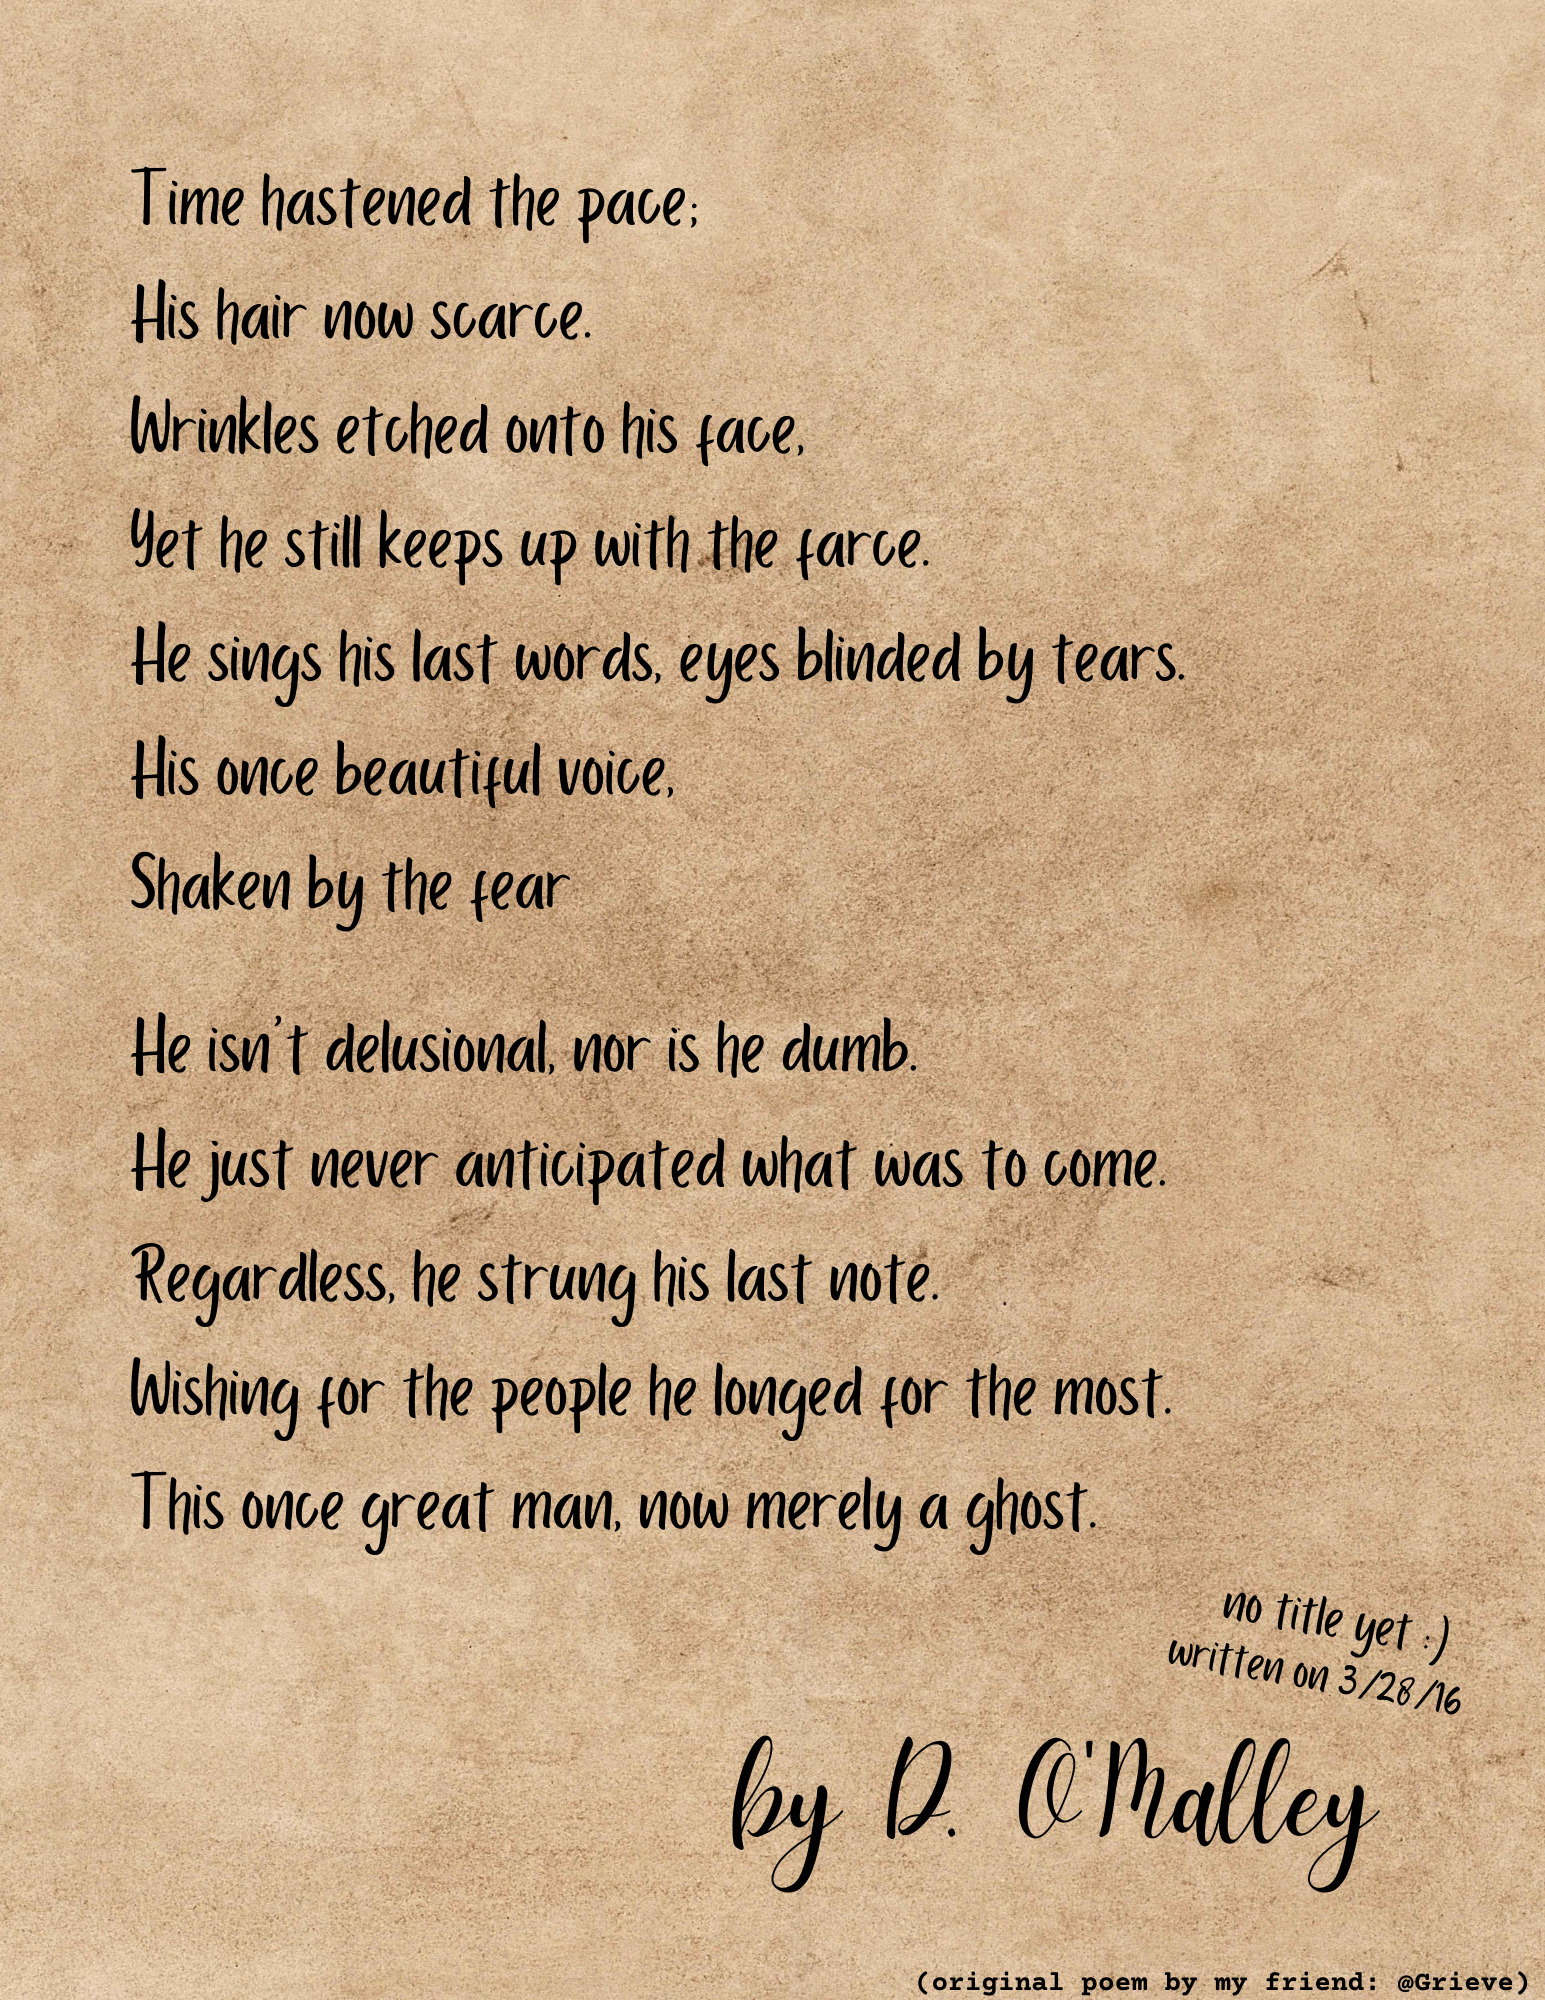 Time hastened the pace;
His hair now scarce.
Wrinkles etched onto his face,
Yet he still keeps up with the farce.
He sings his last words, eyes blinded by tears.
His once beautiful voice,
Shaken by the fear
He isn't delusional, nor is he dumb.
He just never anticipated what was to come.
Regardless, he strung his last note.
Wishing for the people he longed for the most.
This once great man, now merely a ghost.
no title yet :)
written on 3/28/16
by D. O'Malley
(original poem by my friend: @Grieve)